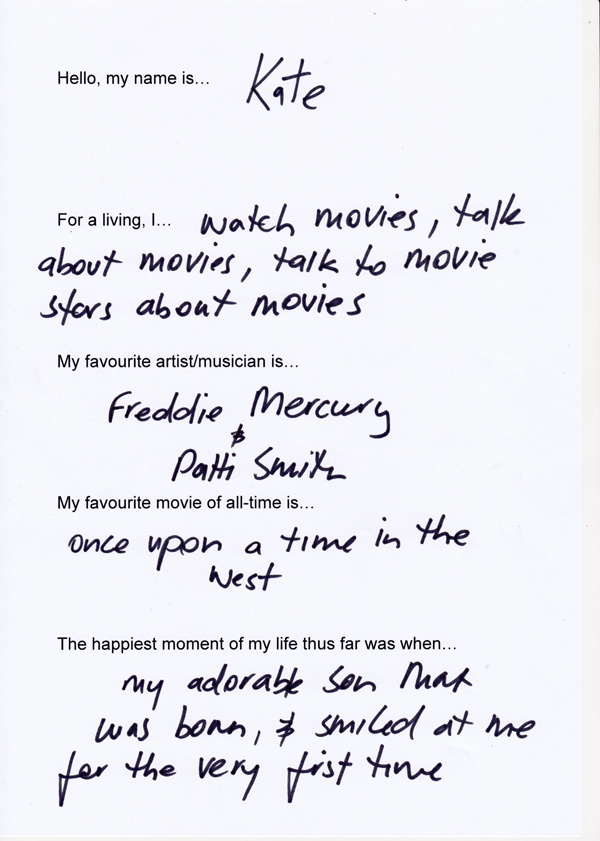 Hello, my name is... Kate
For a living, I... watch movies, talk
about movies, talk to movie
stars about movies
My favourite artist/musician is...
Freddie Mercury
&
Patti Smith
My favourite movie of all-time is...
once upon a time in the
West
The happiest moment of my life thus far was when...
my adorable son Max
was born, & smiled at me
for the very first time